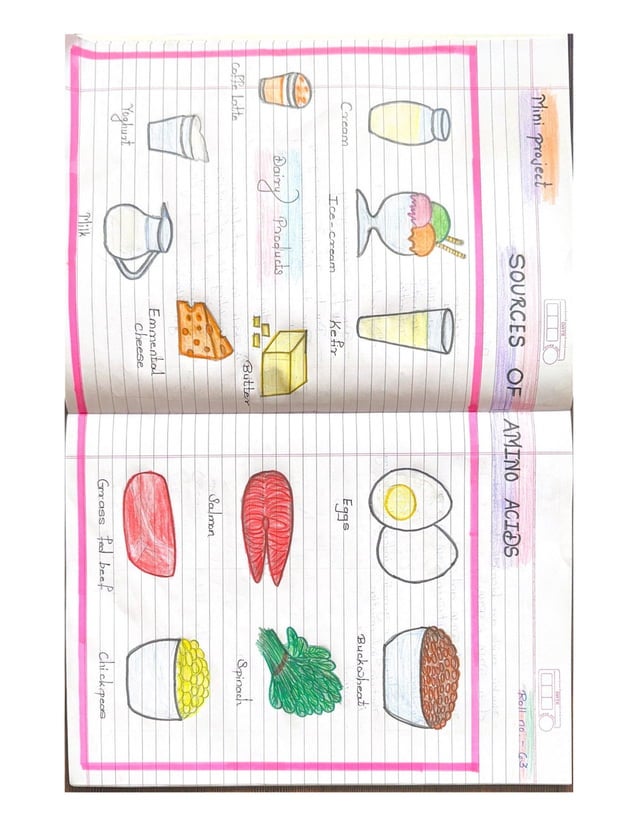 Mini project
Roll no :- 63
SOURCES OF AMINO ACIDS
Cream
Ice-cream
Kefir
Eggs
Buckwheat
Coffe latte
Dairy Products
Butter
Salmon
Spinach
Yoghurt
Milk
Emmental
Cheese
Grrass fed beef
Chickpeas